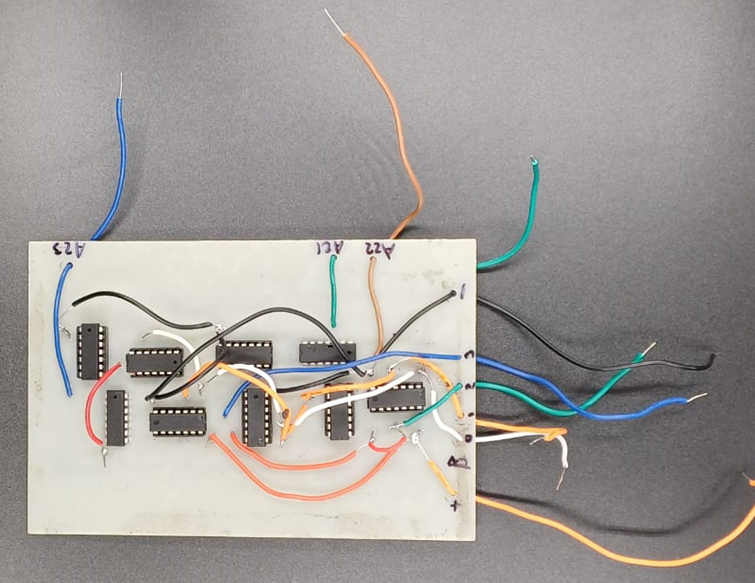 A23
A21
A22
1
3
2
0
+